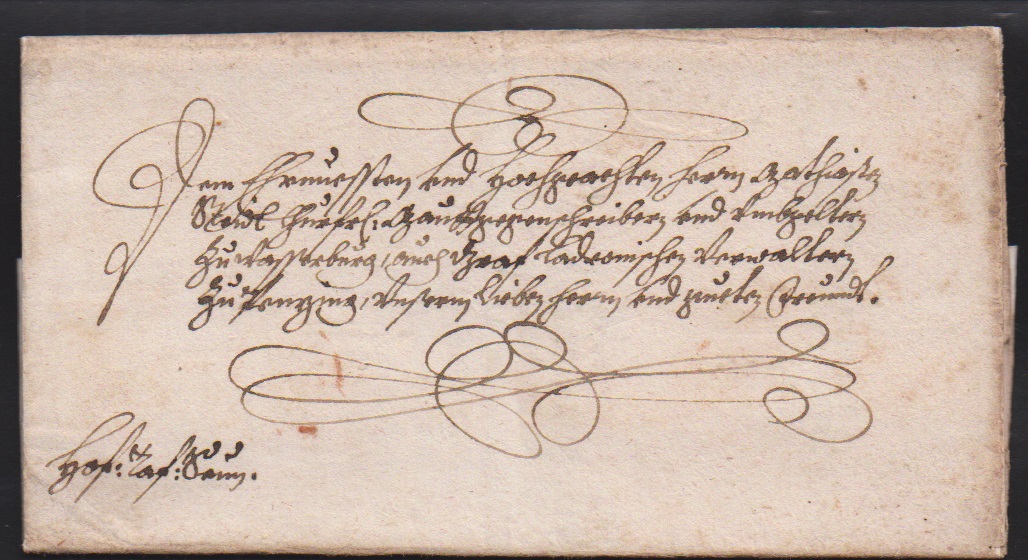 Dem Ehrnuessten und Hochgeachten herrn Mathiasen
Churfrl: Mauttgegenschreibern und Umbgeltern
zu Wasserburg, auch Graf Ladronischen Verwaltern
zu Penzing, Unserm lieben herrn und gueten Freundt.
Hof: